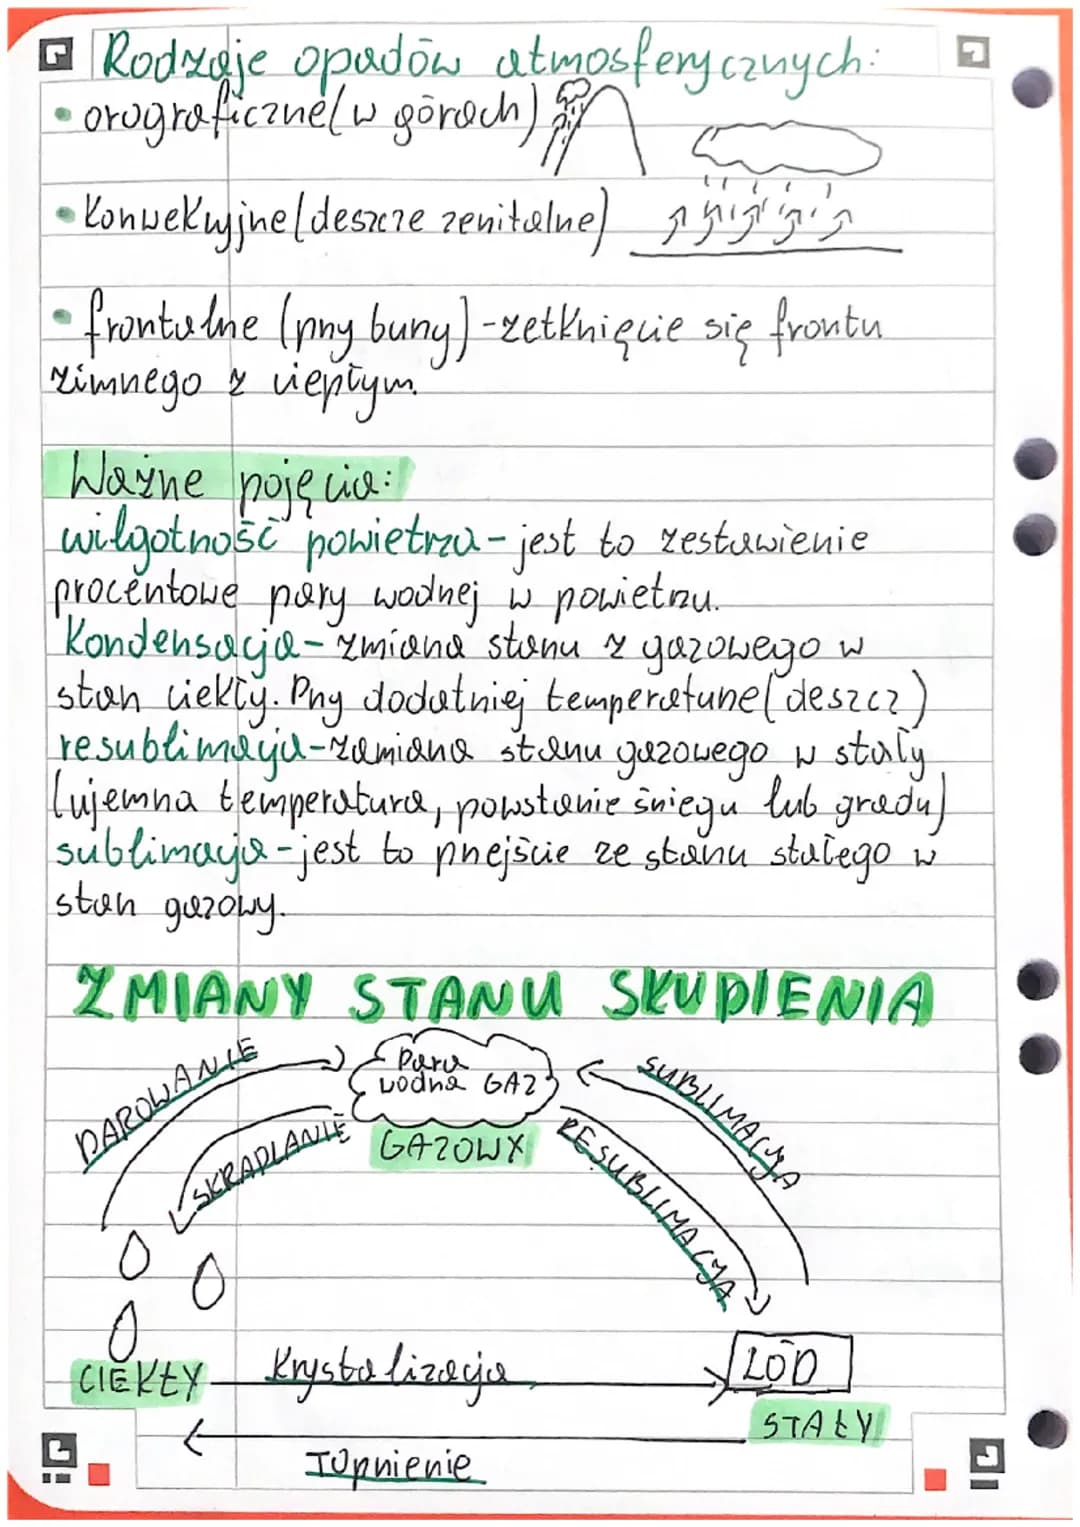 Rodzaje opadów atmosferycznych:
• orograficzne (w górach)
• Konwekcyjne (deszcze zenitalne)
• frontalne (przy burzy) - zetknięcie się frontu
zimnego z ciepłym.
Ważne pojęcia:
wilgotność powietrza - jest to zestawienie
procentowe pary wodnej w powietrzu.
Kondensacja - zmiana stanu z gazowego w
stan ciekły. Przy dodatniej temperaturze (deszcz)
resublimacja - zamiana stanu gazowego w stały
(ujemna temperatura, powstanie śniegu lub gradu)
sublimacja - jest to przejście ze stanu stałego w
stan gazowy.
ZMIANY STANU SKUPIENIA
PAROWANIE
Para
wodna GAZ
SUBLIMACJA
SKRAPLANIE
GAZOWY
RESUBLIMACJA
CIEKŁY
Krystalizacja
LÓD
STAŁY
TOpnienie